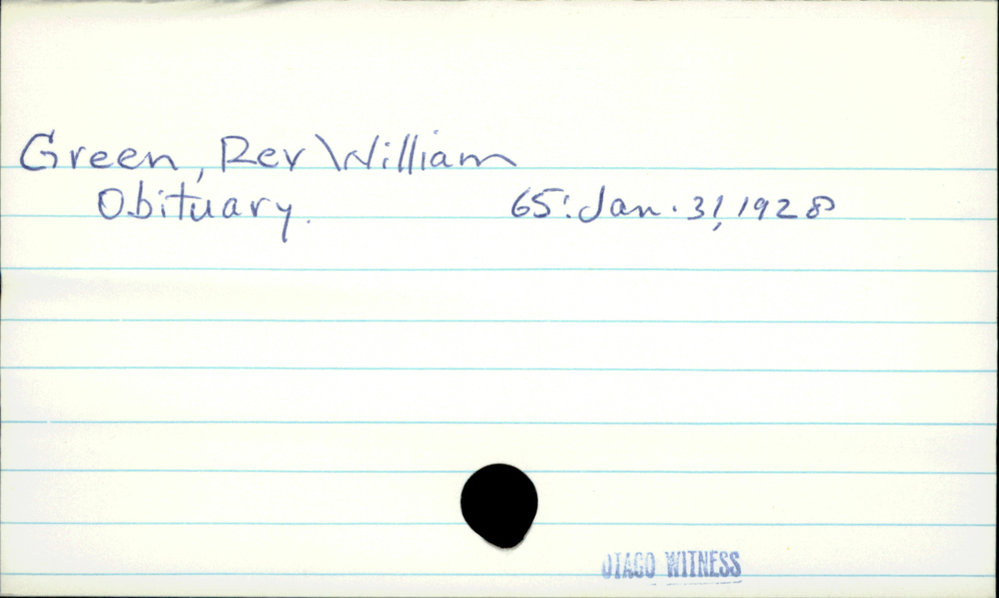 Green, Rev William
Obituary. 65: Jan. 31, 1928
OTAGO WITNESS